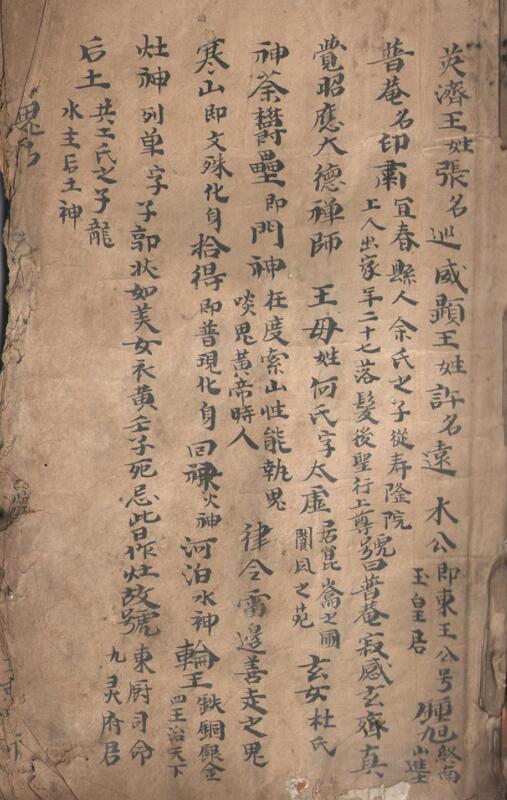 英濟王姓張名巡威顯王姓許名遠 木公即東王公号玉皇君 鍾馗終南山進士
普菴名印肅宜春縣人余氏之子從寿隆院上人出家年二十七落髮後聖行上尊號曰普菴寂感玄齊真
覺昭應大德禅師 王母姓何氏字太虛居崑崙之圃閬风之苑 玄女杜氏
神荼欝壘即門神在度索山性能執鬼啖鬼黃帝時人 律令雷邊善走之鬼
寒山即文殊化身拾得即普現化身回祿火神河泊水神 輪王鉄銅銀金四王治天下
灶神列单字子郭狀如美女衣黃壬子死忌此日作灶故號東厨司命九灵府君
后土共工氏之子龍水主后土神